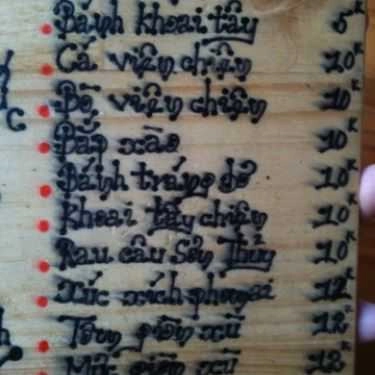 Bánh khoai tây 5K
Cá viên chiên 10K
Bò viên chiên 10K
Bắp xào 10K
Bánh tráng dẻ 10K
Khoai tây chiên 10K
Rau câu Sơn Thủy 10K
Xúc xích phomai 12K
Tôm viên xù 12K
Mực viên xù 12K